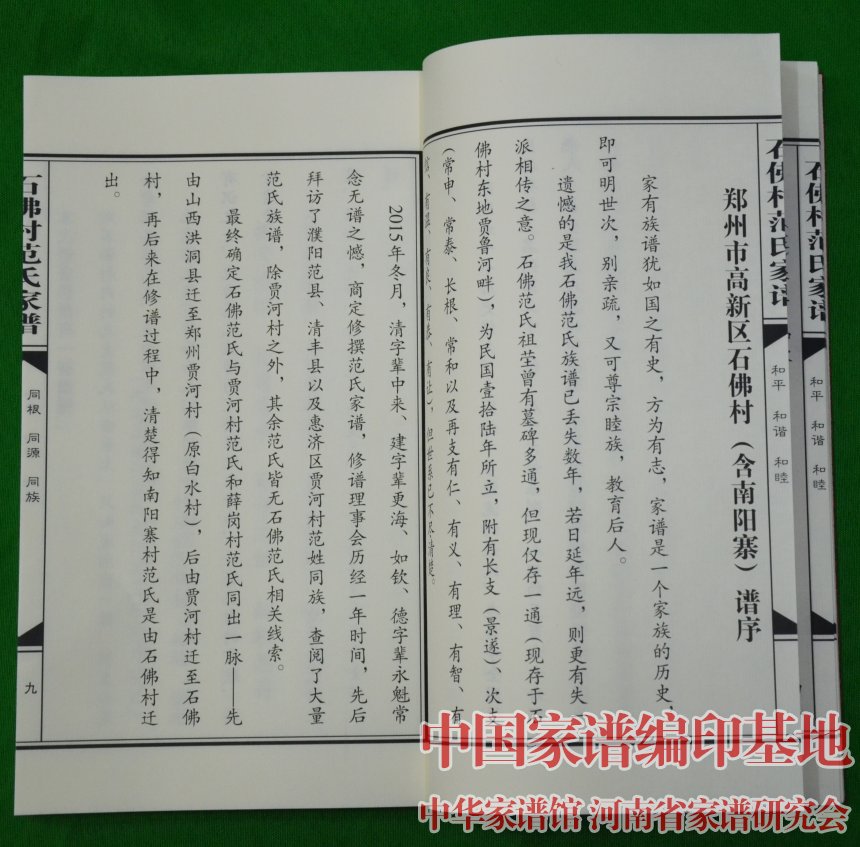 石佛村范氏家谱
和平 和谐 和睦
石佛村范氏家谱
和平 和谐 和睦
郑州市高新区石佛村（含南阳寨）谱序
家有族谱犹如国之有史，方为有志，家谱是一个家族的历史，
即可明世次，别亲疏，又可尊宗睦族，教育后人。
遗憾的是我石佛范氏族谱已丢失数年，若日延年远，则更有失
派相传之意。石佛范氏祖茔曾有墓碑多通，但现仅存一通（现存于石
佛村东地贾鲁河畔），为民国壹拾陆年所立，附有长支（景遂）、次支
（常申、常泰、长根、常和以及再支有仁、有义、有理、有智、有
但世系已不尽清楚。
2015年冬月，清字辈中来、建字辈更海、如钦、德字辈永魁常
念无谱之憾，商定修撰范氏家谱，修谱理事会历经一年时间，先后
拜访了濮阳范县、清丰县以及惠济区贾河村范姓同族，查阅了大量
范氏族谱，除贾河村之外，其余范氏皆无石佛范氏相关线索。
最终确定石佛范氏与贾河村范氏和薛岗村范氏同出一脉——先
由山西洪洞县迁至郑州贾河村（原白水村），后由贾河村迁至石佛
村，再后来在修谱过程中，清楚得知南阳寨村范氏是由石佛村迁
出。
石佛村范氏家谱
同根 同源 同族
九
中国家谱编印基地
中华家谱馆 河南省家谱研究会